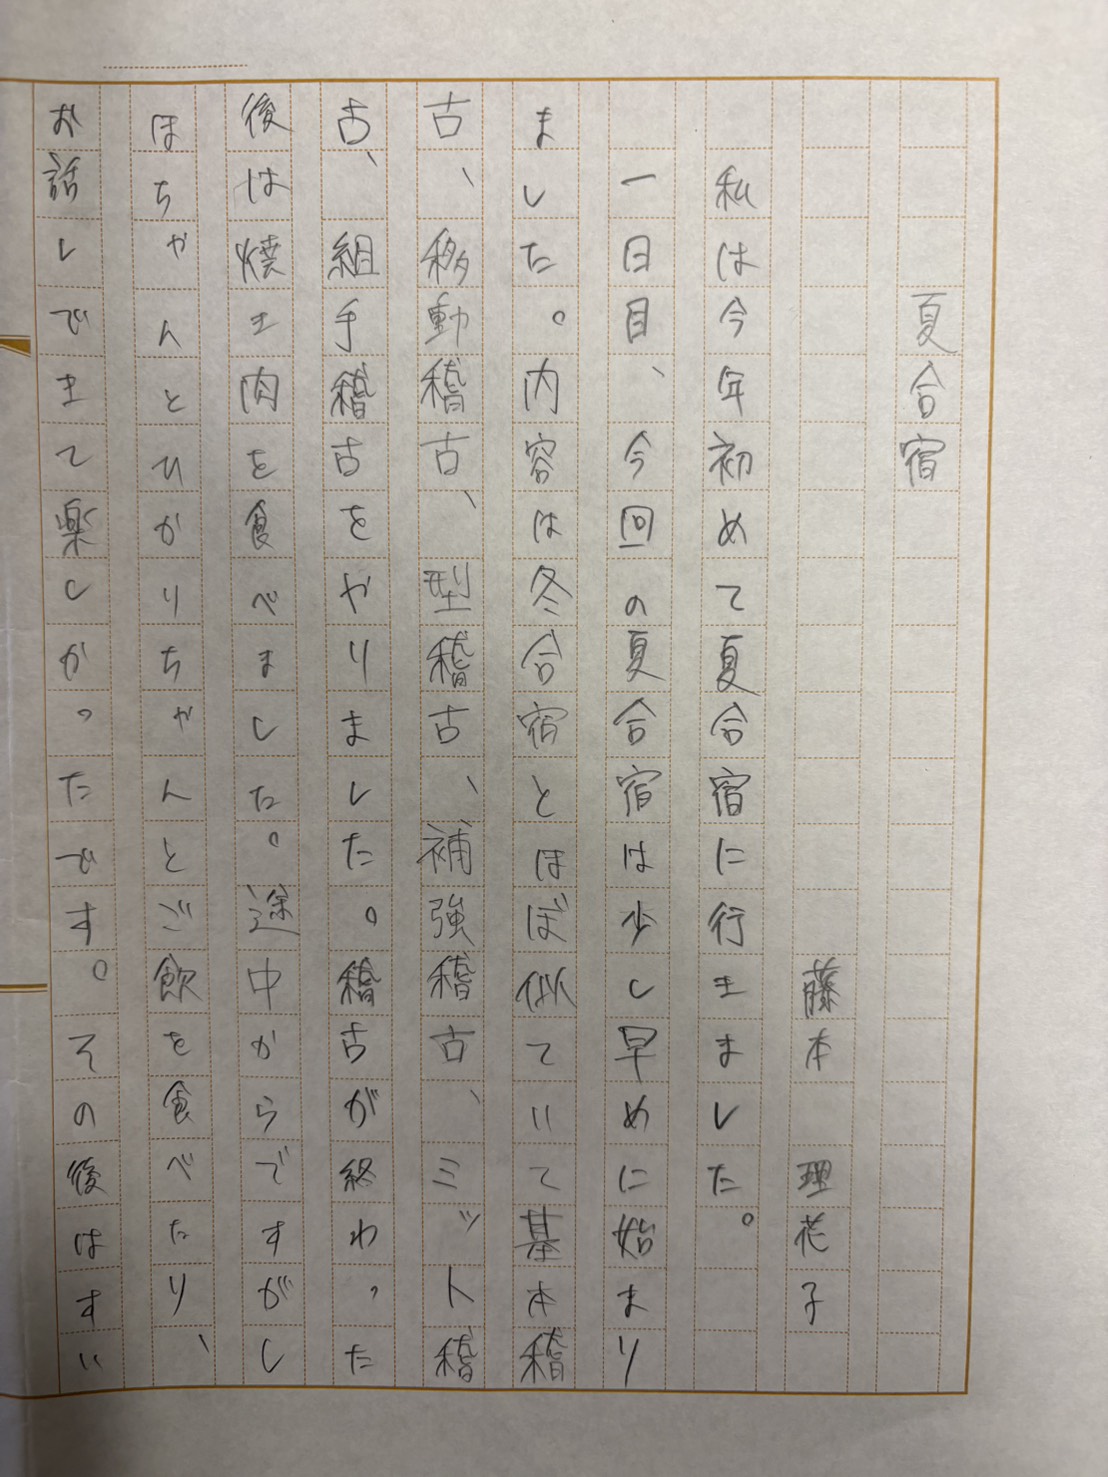 夏合宿
藤本 理花子
私は今年初めて夏合宿に行きました。
一日目、今回の夏合宿は少し早めに始まり
ました。内容は冬合宿とほぼ似ていて基本稽
古、移動稽古、型稽古、補強稽古、ミット稽
古、組手稽古をやりました。稽古が終わった
後は焼き肉を食べました。途中からですがし
ほちゃんとひかりちゃんとご飲を食べたり、
お話しできて楽しかったです。その後はすい